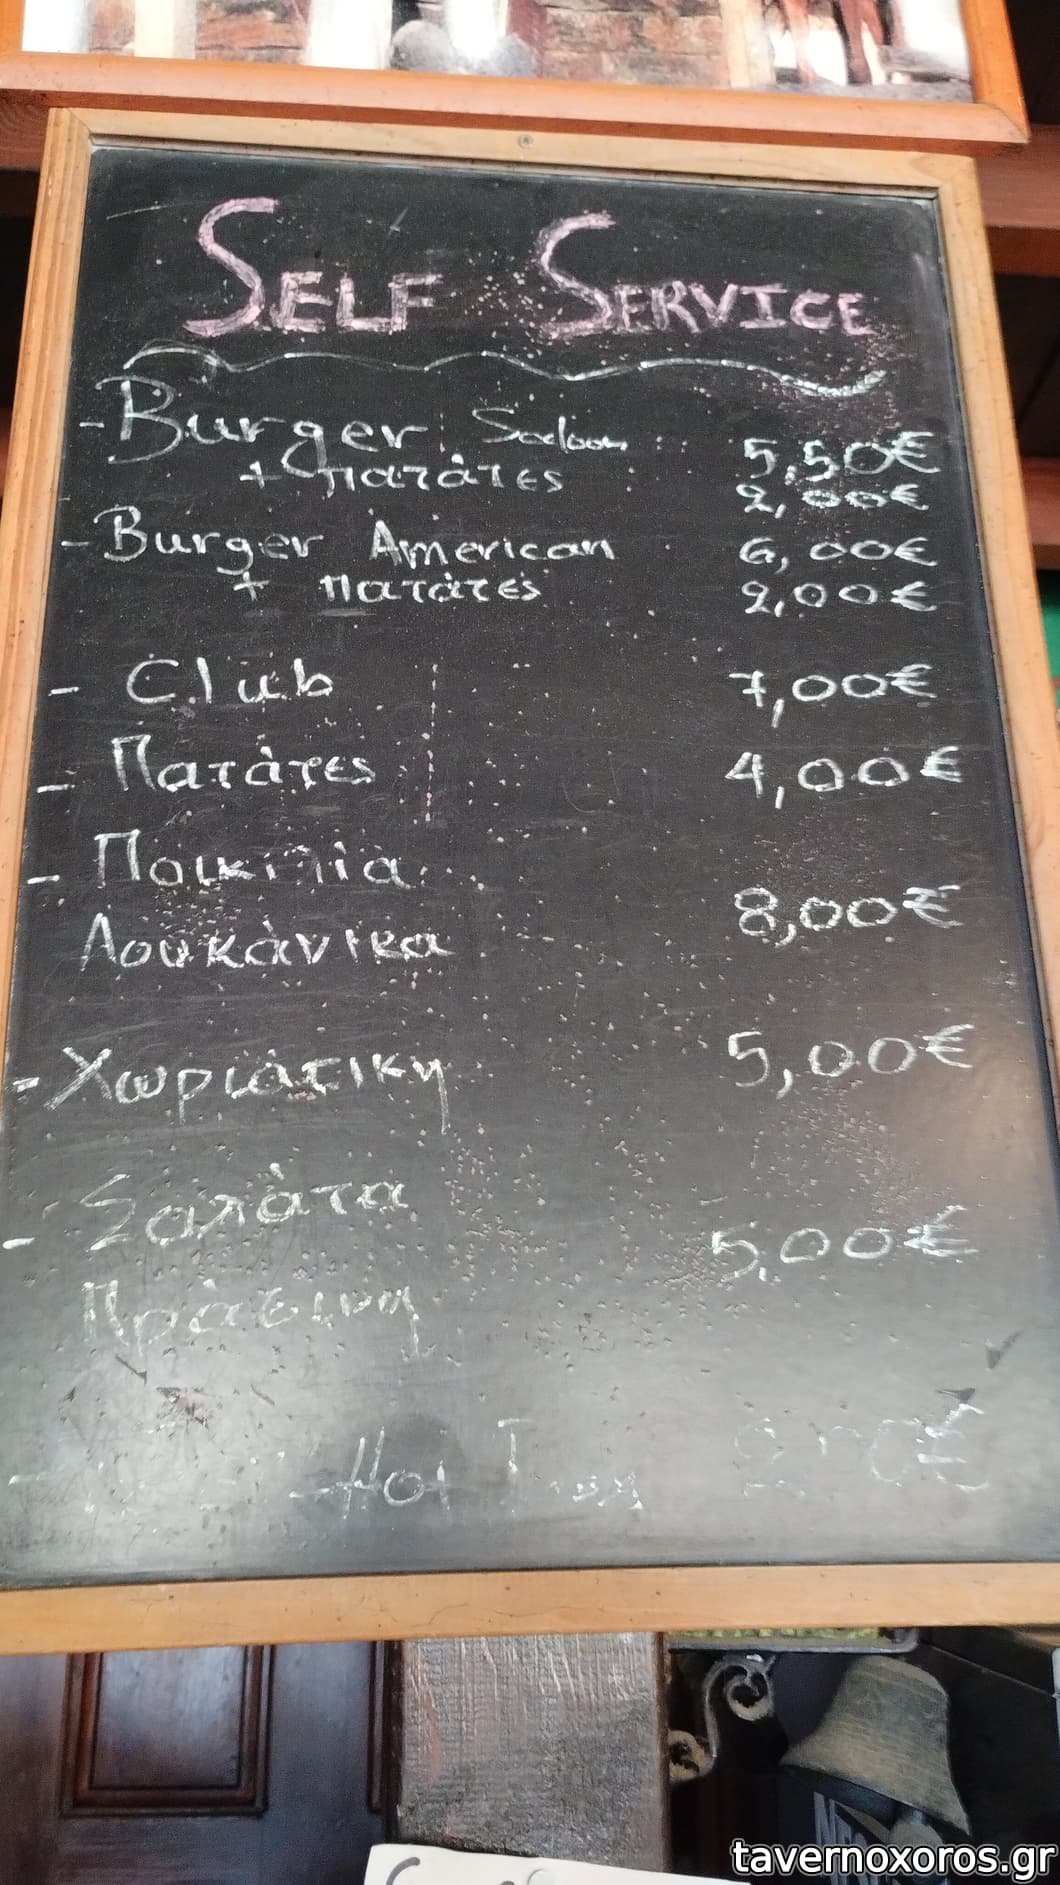 SELF SERVICE
- Burger Saloon : 5,50€
+ πατάτες : 2,00€
- Burger American 6,00€
+ πατάτες 2,00€
- Club 7,00€
- Πατάτες 4,00€
- Ποικιλία
Λουκάνικα 8,00€
- Χωριάτικη 5,00€
- Σαλάτα
Πράσινη 5,00€
- Hot
tavernoxoros.gr